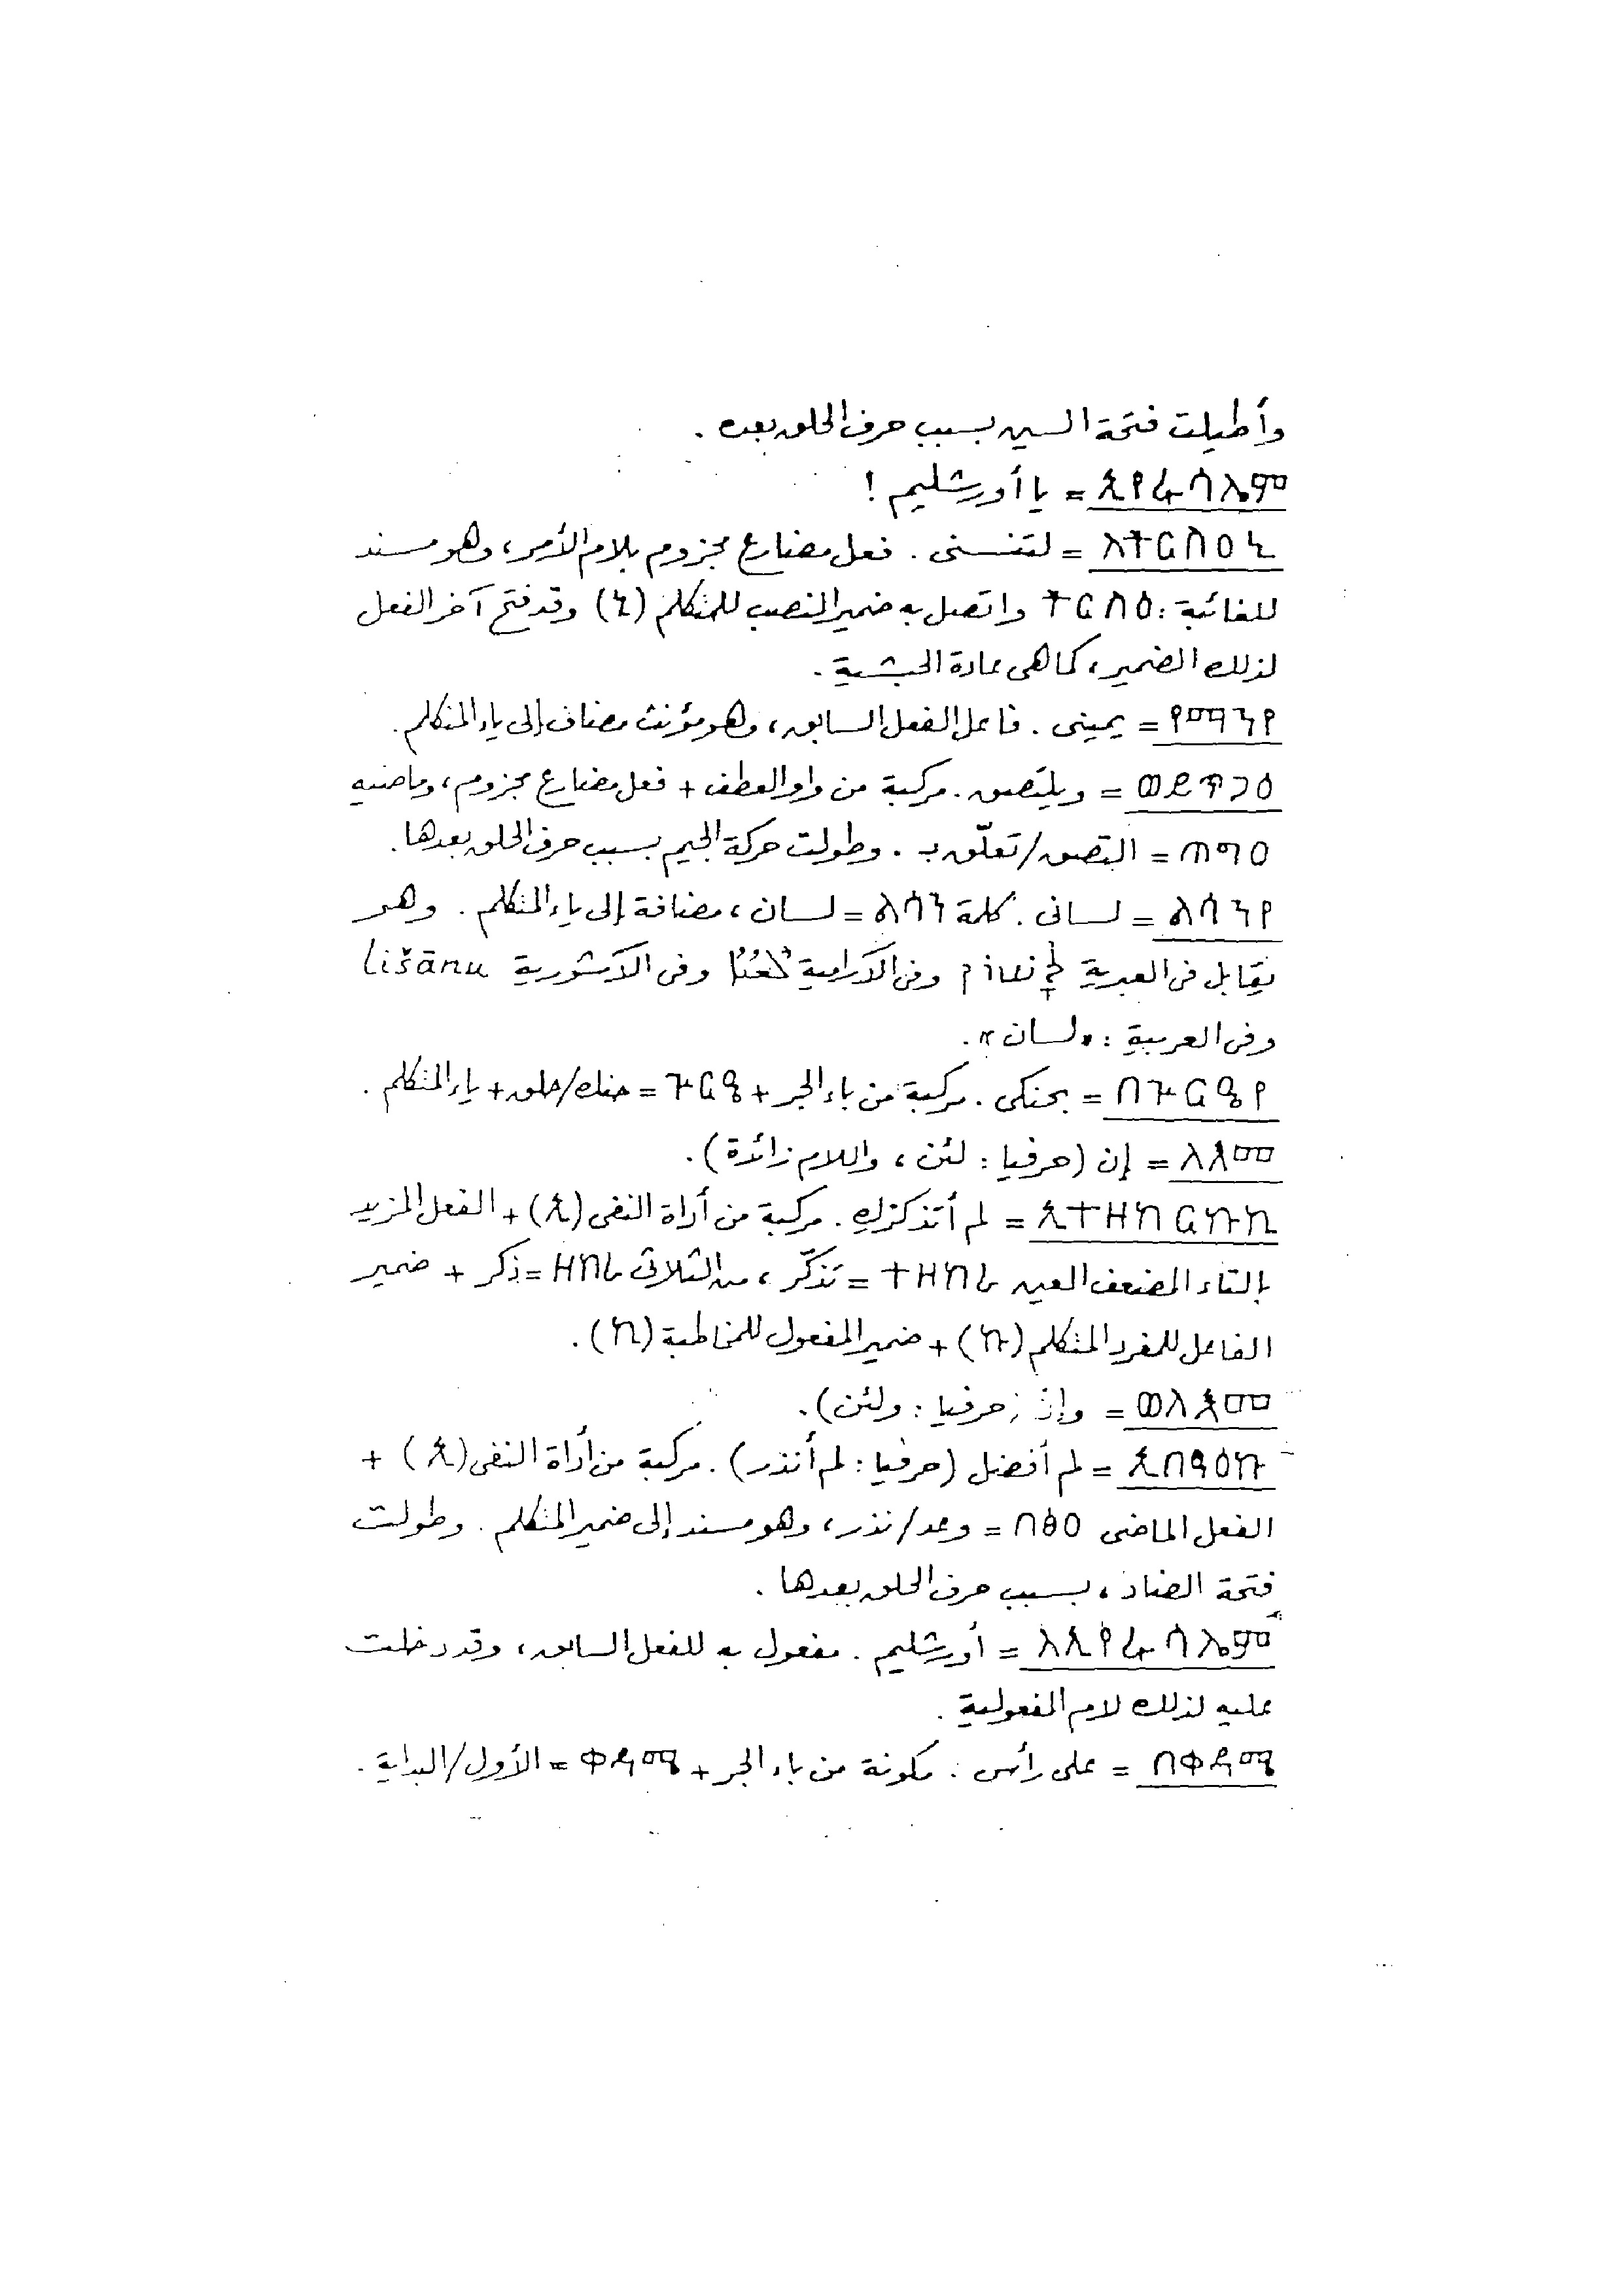 وأطيلت فتحة السين بسبب حرف الحلق بعده .
ኢየሩሳሌም = يا أورشليم !
ለትርሳዕኒ = لتنسنى . فعل مضارع مجزوم بلام الأمر ، وهو مسند
للغائبة : ትርሳዕ واتصل به ضمير النصب للمتكلم (ኒ) وقد فتح آخر الفعل
لذلك الضمير ، كما هى عادة الحبشية .
የማንየ = يمينى . فاعل الفعل السابق ، وهو مؤنث مضاف إلى ياء المتكلم .
ወይጥጋዕ = ويلتصق . مركبة من واو العطف + فعل مضارع مجزوم ، وماضيه
ጠግዐ = التصق/تعلّق بـ . وطولت حركة الجيم بسبب حرف الحلق بعدها .
ልሳንየ = لسانى . كلمة ልሳን = لسان ، مضافة إلى ياء المتكلم . وهو
يقابل فى العبرية לָשׁוֹן وفى الآرامية ܠܫܢܐ وفى الآشورية lišānu
وفى العربية : « لسان » .
በጕርዔየ = بحنكى . مركبة من باء الجر + ጕርዔ = حنك/حلق + ياء المتكلم .
ለእመ = إن (حرفيا : لئن ، واللام زائدة) .
ኢተዘከርኩኪ = لم أتذكركِ . مركبة من أداة النفى (ኢ) + الفعل المزيد
بالتاء المضعف العين ተዘከረ = تذكّر ، من الثلاثى ዘከረ = ذكر + ضمير
الفاعل للمفرد المتكلم (ኩ) + ضمير المفعول للمخاطبة (ኪ) .
ወለእመ = وإن (حرفيا : ولئن) .
ኢበፃዕኩ = لم أفضل (حرفيا : لم أنذر) . مركبة من أداة النفى (ኢ) +
الفعل الماضى በፅዐ = وعد/نذر ، وهو مسند إلى ضمير المتكلم . وطولت
فتحة الضاد ، بسبب حرف الحلق بعدها .
ለኢየሩሳሌም = أورشليم . مفعول به للفعل السابق ، وقد دخلت
عليه لذلك لام المفعولية .
በቀዳሚ = على رأس . مكونة من باء الجر + ቀዳሚ = الأول/البداية .